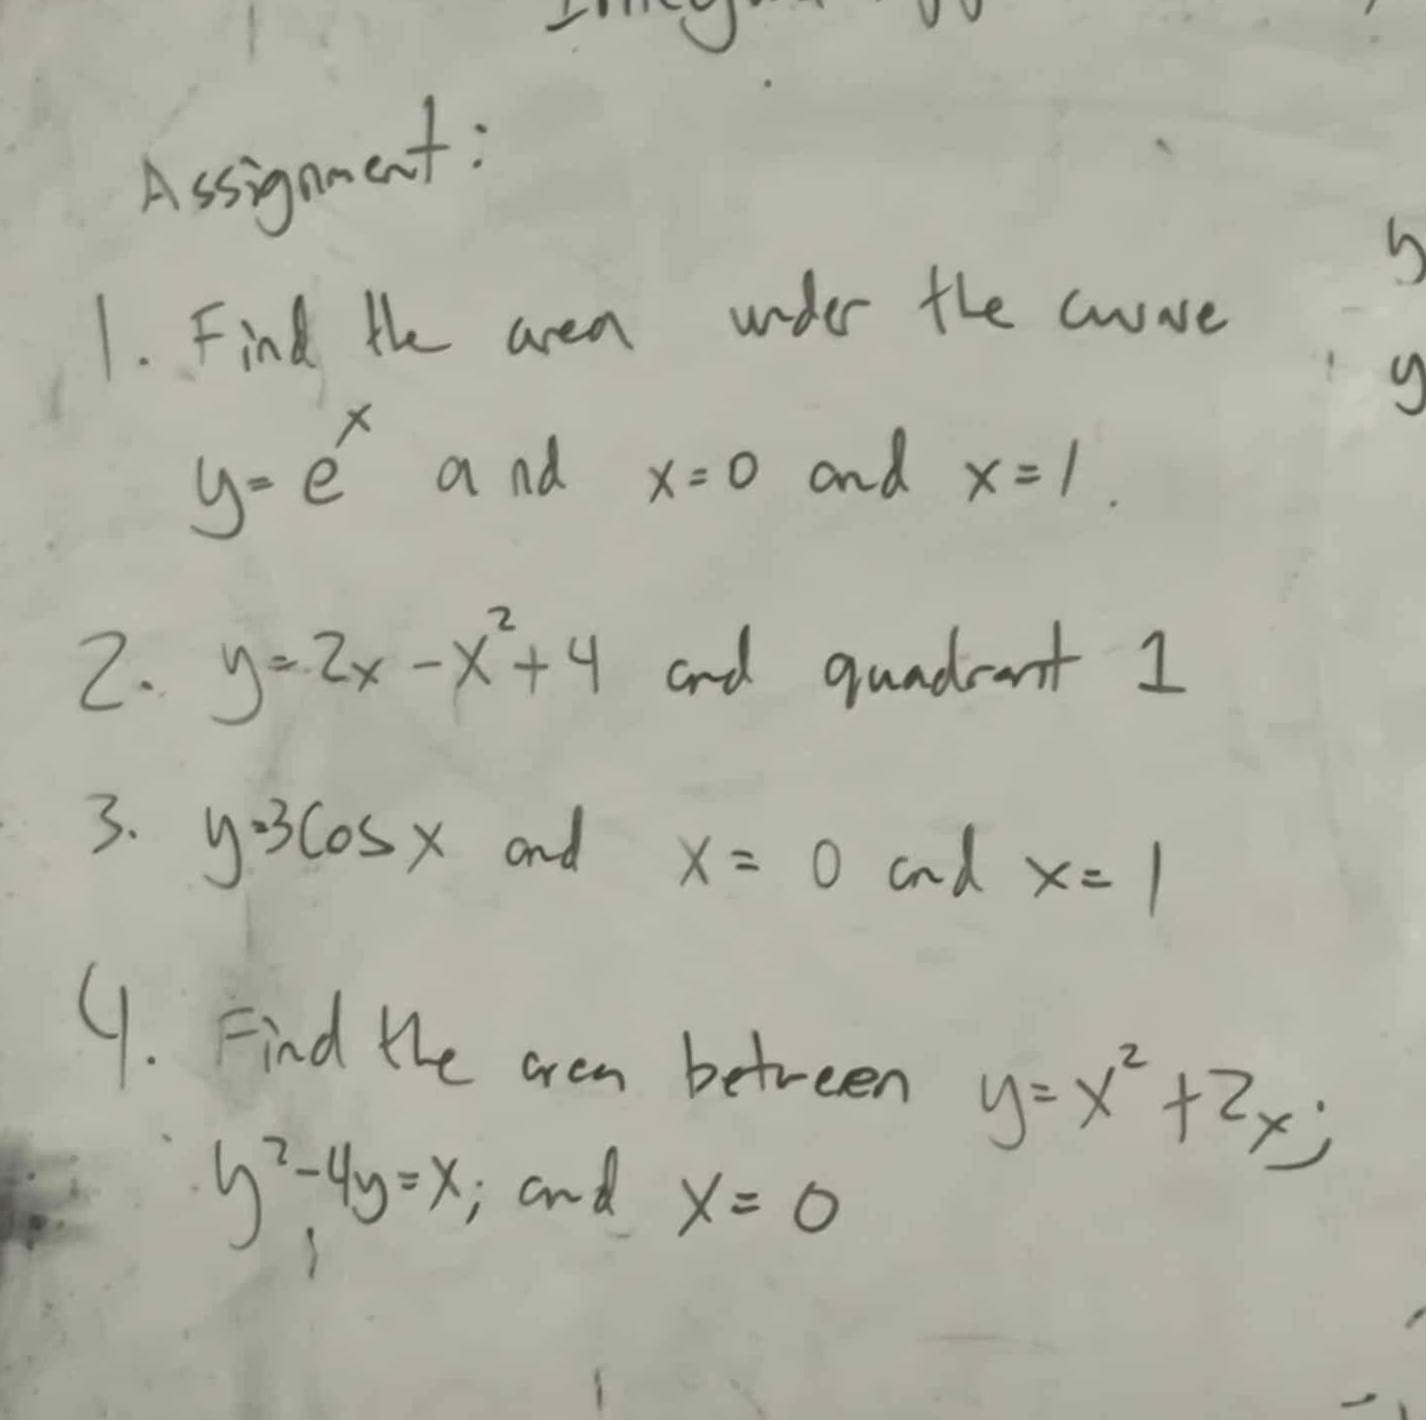 Assignment:
1. Find the area under the curve
y=e^x and x=0 and x=1.
2. y=2x-x²+4 and quadrant 1
3. y=3Cosx and x=0 and x=1
4. Find the area between y=x²+2x;
y²-4y=x; and x=0
y
y